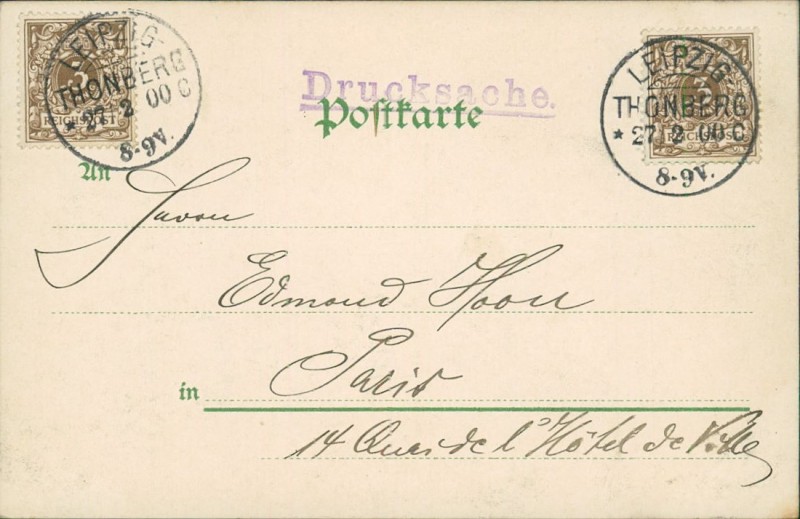 LEIPZIG-
THONBERG
* 27 2 00 C
8-9V.
3
REICHSPOST
Drucksache.
Postkarte
LEIPZIG-
THONBERG
* 27 2 00 C
8-9V.
3
REICHSPOST
An
Herrn
Edmond Hoon
in Paris
14 Quai de l'Hôtel de Ville